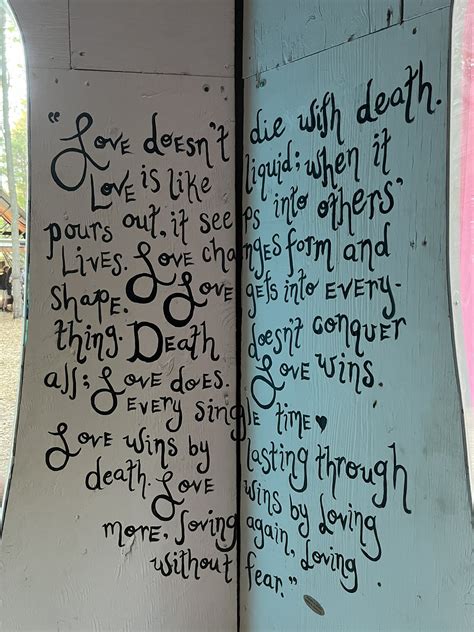 "Love doesn't die with death.
Love is like liquid; when it
pours out, it seeps into others'
Lives. Love changes form and
shape. Love gets into every-
thing. Death doesn't conquer
all; Love does. Love wins.
Every single time♥
Love wins by lasting through
death. Love wins by Loving
more, loving again, Loving
without fear."